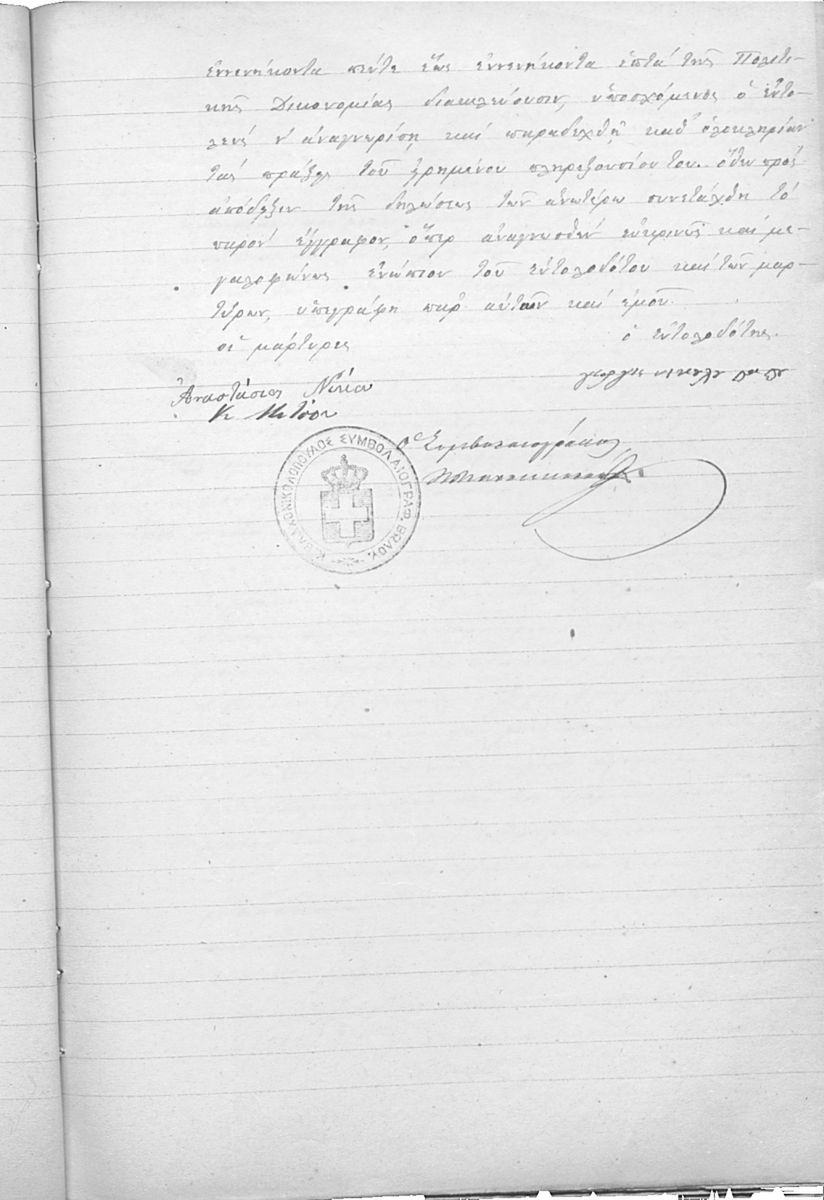 ἐννενήκοντα πέντε ἕως ἐννενήκοντα ἑπτά τῆς Πολιτι-
κῆς Δικονομίας διακελεύουσιν, ὑποσχόμενος ὁ ἐντο-
λεύς ν' ἀναγνωρίσῃ καί παραδεχθῇ καθ' ὁλοκληρίαν
τάς πράξεις τοῦ εἰρημένου πληρεξουσίου του. ὅθεν πρός
ἀπόδειξιν τῆς δηλώσεως τῶν ἀνωτέρω συνετάχθη τό
παρόν ἔγγραφον, ὅπερ ἀναγνωσθέν εὐκρινῶς καί με-
γαλοφώνως ἐνώπιον τοῦ ἐντολοδότου καί τῶν μαρ-
τύρων, ὑπεγράφη παρ' αὐτῶν καί ἐμοῦ.
οἱ μάρτυρες
ὁ ἐντολοδότης
Ἀναστάσιος
Κ. Μητσου
ὁ Συμβολαιογράφος
ΝΙΚΟΛΟΠΟΥΛΟΣ ΣΥΜΒΟΛΑΙΟΓΡΑΦ.